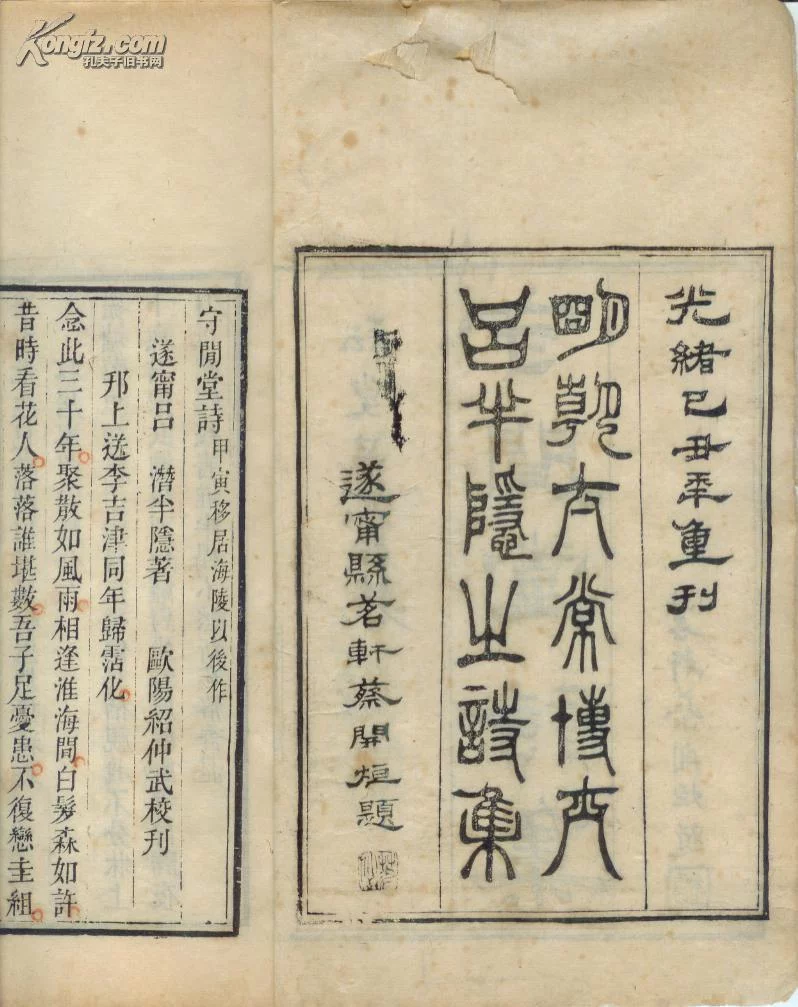 Kongfz.com
孔夫子旧书网
光緒己丑季重刊
明朝太常博士
呂半隱之詩集
遂甯縣茗軒蔡開烜題
守閒堂詩 甲寅移居海陵以後作
遂甯呂　潛半隱著　歐陽紹仲武校刊
邗上送李吉津同年歸霑化
念此三十年聚散如風雨相逢淮海間白髮森如許
昔時看花人落落誰堪數吾子足憂患不復戀圭組